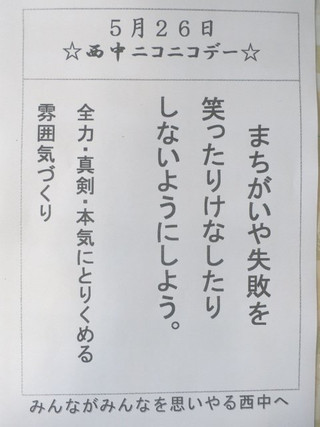 5月26日
☆西中ニコニコデー☆
まちがいや失敗を
笑ったりけなしたり
しないようにしよう。
全力・真剣・本気にとりくめる
雰囲気づくり
みんながみんなを思いやる西中へ